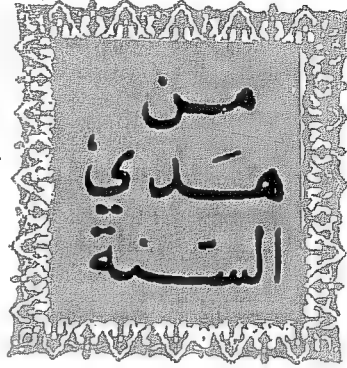 من
هَدي
السنة